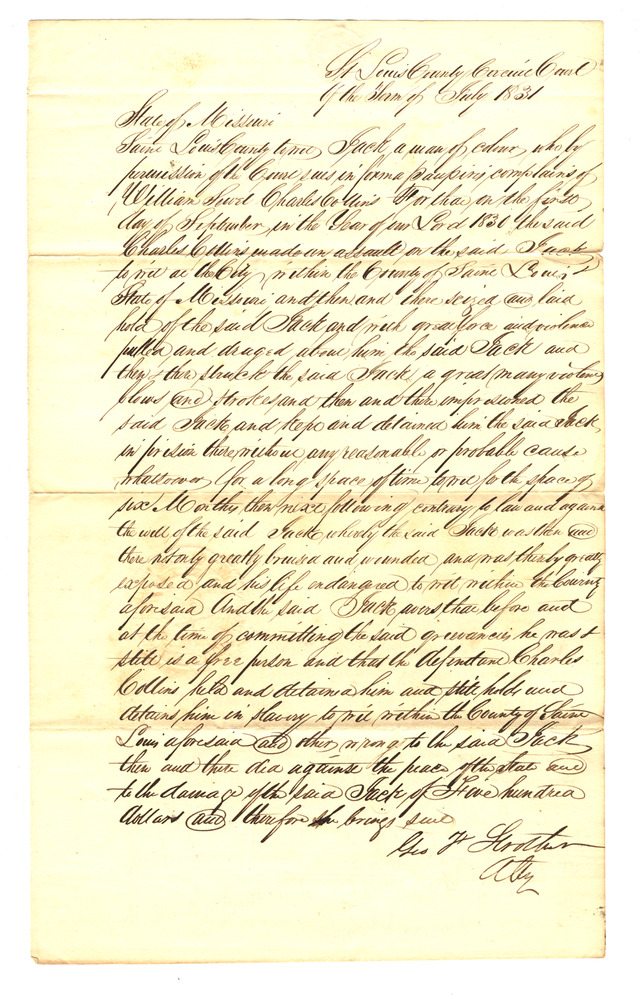 St Louis County Circuit Court
Of the Term of July 1831
State of Missouri
Saint Louis County towit Jack a man of colour, who by
permission of the Court sues in forma pauperis, complains of
Charles Collins For that on the first
day of September, in the Year of our Lord 1830 the said
Charles Collins made an assault on the said Jack
to wit at the City, within the County of Saint Louis &
State of Missouri and then and there seized and laid
hold of the said Jack and with great force and violence
pulled and draged about him the said Jack and
then & there struck the said Jack a great many violent
blows and strokes and then and there imprisoned the
said Jack, and kept and detained him the said Jack,
in prison there, without any reasonable or probable cause
whatsoever (for a long space of time, to wit for the space of
six Months then next following contrary to law and against
the will of the said Jack whereby the said Jack was then and
there not only greatly bruised and wounded and was thereby greatly
exposed and his life endangered to wit within the County
aforesaid And the said Jack avers that before and
at the time of committing the said grievances he was &
still is a free person and that the defendant Charles
Collins held and detained him and still holds and
detains him in slavery to wit, within the County of Saint
Louis aforesaid and other wrongs to the said Jack
then and there did against the peace of the State and
to the damage of the said Jack of Five hundred
dollars and therefore he brings suit
Geo F Strother
Atty